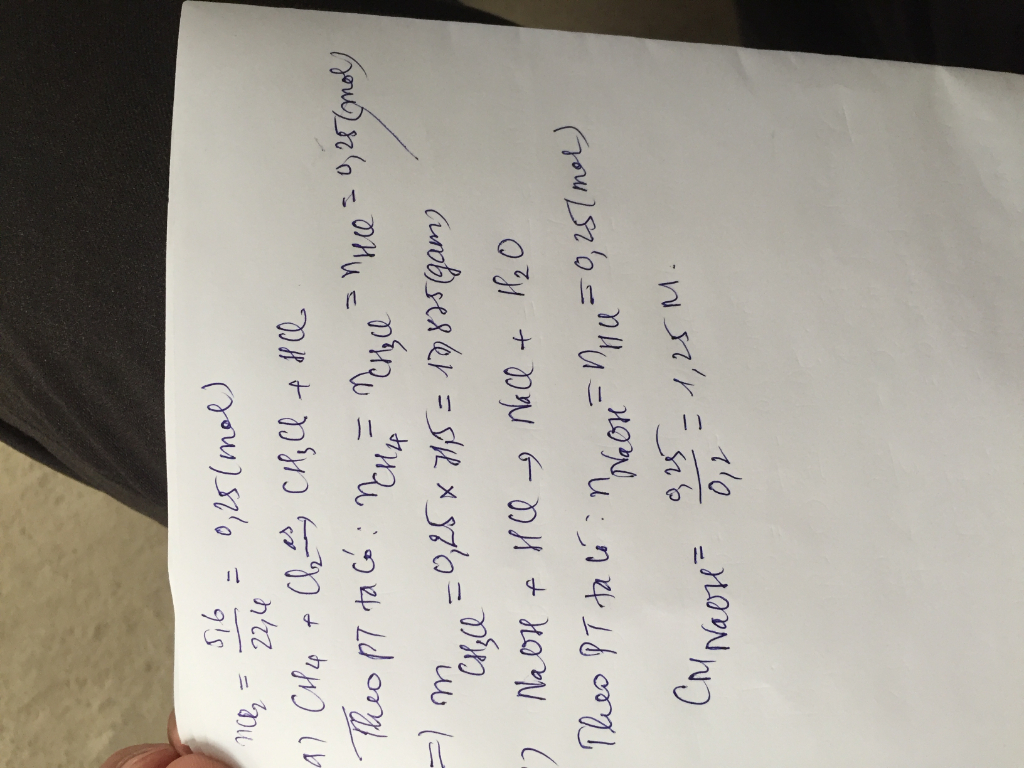 nCl2 = 5,6/22,4 = 0,25 (mol)
a) CH4 + Cl2 →as CH3Cl + HCl
Theo PT ta có: nCH4 = nCH3Cl = nHCl = 0,25 (mol)
=) mCH3Cl = 0,25 x
) NaOH + HCl → NaCl + H2O
Theo PT ta có: nNaOH = nHCl = 0,25 (mol)
CM NaOH = 0,25/0,2 = 1,25 M.